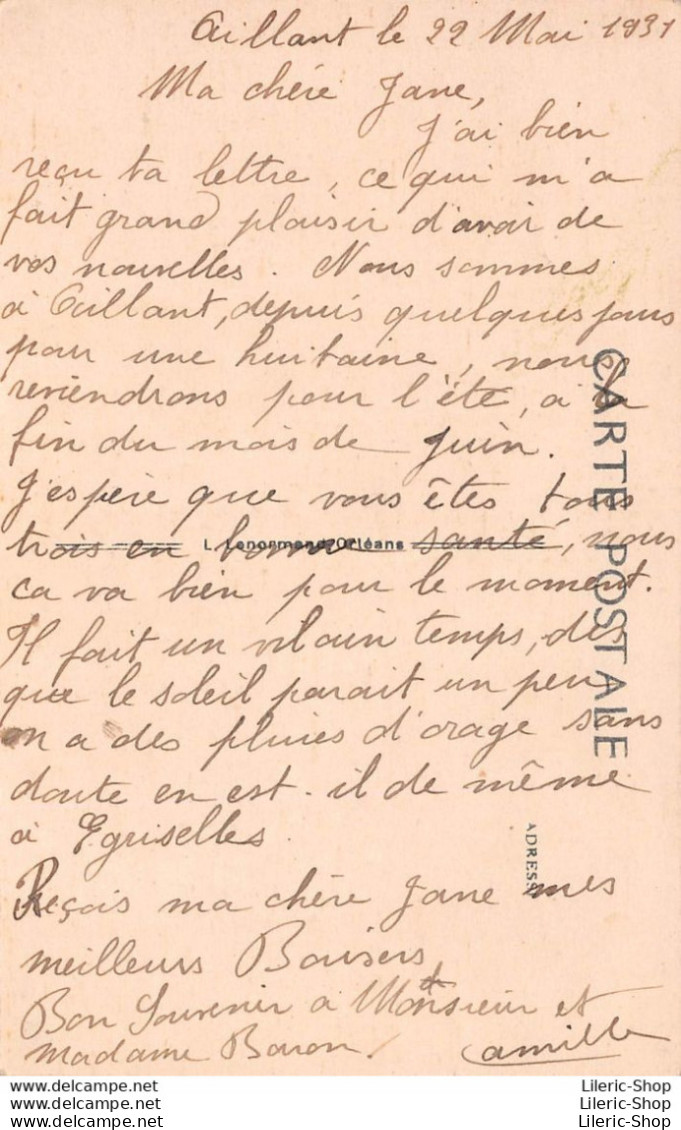 Aillant le 22 Mai 1931
Ma chère Jane,
J'ai bien
reçu ta lettre, ce qui m'a
fait grand plaisir d'avoir de
vos nouvelles. Nous sommes
à Aillant, depuis quelques jours
pour une huitaine, nous
reviendrons pour l'été, à la
fin du mois de Juin.
J'espère que vous êtes tous
trois en bonne santé, nous
ça va bien pour le moment.
Il fait un vilain temps, dès
que le soleil parait un peu
on a des pluies d'orage sans
doute en est-il de même
à Egriselles.
Reçois ma chère Jane mes
meilleurs Baisers
Bon Souvenir à Monsieur et
Madame Baron. Camille
L. Lenormand, Orléans
CARTE POSTALE
ADRESSE
Lileric-Shop
Lileric-Shop
Lileric-Shop